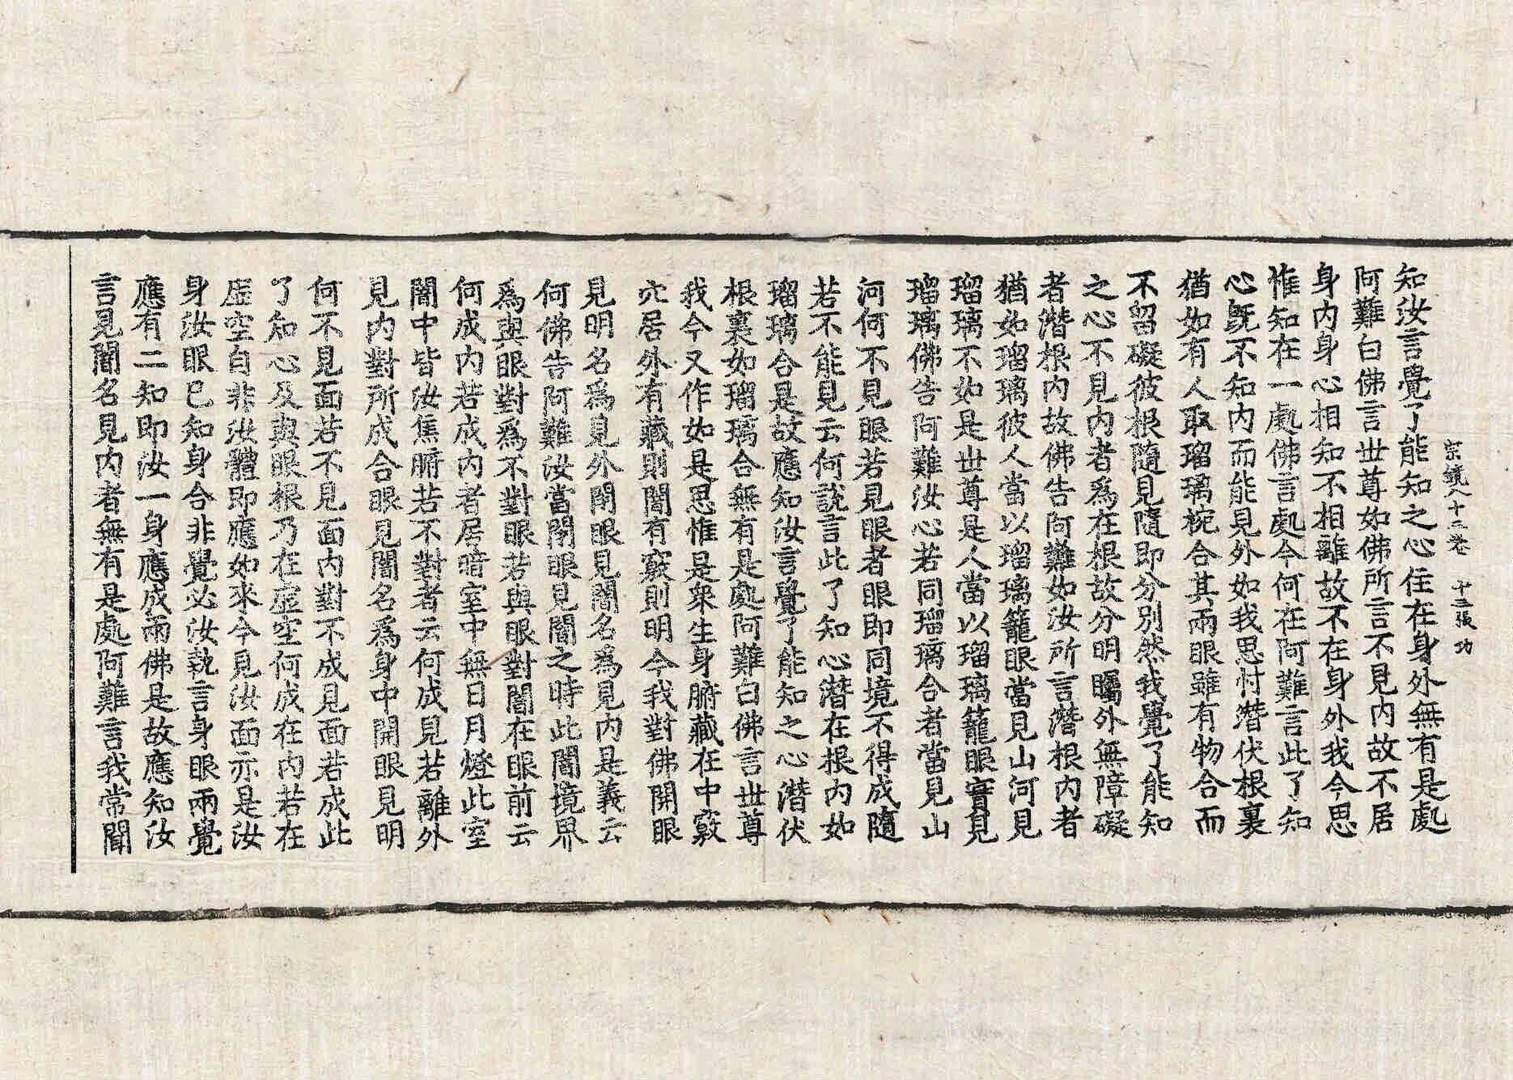 宗鏡八十二卷 十三張 功
知汝言覺了能知之心住在身外無有是處
阿難白佛言世尊如佛所言不見內故不居
身內身心相知不相離故不在身外我今思
惟知在一處佛言處今何在阿難言此了知
心旣不知內而能見外如我思忖潛伏根裏
猶如有人取瑠璃椀合其兩眼雖有物合而
不留礙彼根隨見隨即分別然我覺了能知
之心不見內者爲在根故分明矚外無障礙
者潛根內故佛告阿難如汝所言潛根內者
猶如瑠璃彼人當以瑠璃籠眼當見山河見
瑠璃不如是世尊是人當以瑠璃籠眼實見
瑠璃佛告阿難汝心若同瑠璃合者當見山
河何不見眼若見眼者眼即同境不得成隨
若不能見云何說言此了知心潛在根內如
瑠璃合是故應知汝言覺了能知之心潛伏
根裏如瑠璃合無有是處阿難白佛言世尊
我今又作如是思惟是衆生身腑藏在中竅
穴居外有藏則闇有竅則明今我對佛開眼
見明名爲見外閉眼見闇名爲見內是義云
何佛告阿難汝當閉眼見闇之時此闇境界
爲與眼對爲不對眼若與眼對闇在眼前云
何成內若成內者居暗室中無日月燈此室
闇中皆汝焦腑若不對者云何成見若離外
見內對所成合眼見闇名爲身中開眼見明
何不見面若不見面內對不成見面若成此
了知心及與眼根乃在虛空何成在內若在
虛空自非汝體即應如來今見汝面亦是汝
身汝眼已知身合非覺必汝執言身眼兩覺
應有二知即汝一身應成兩佛是故應知汝
言見闇名見內者無有是處阿難言我常聞